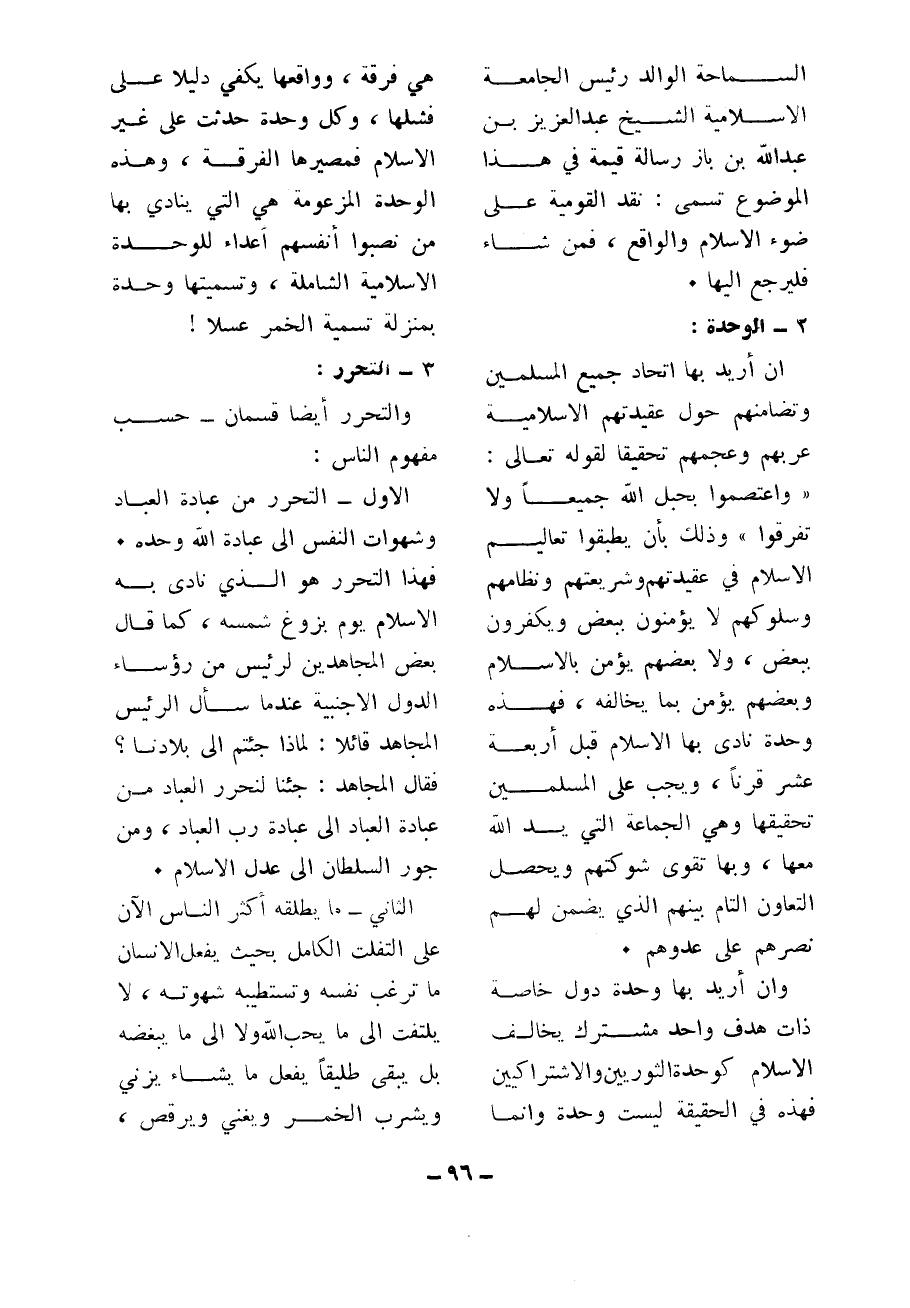 السماحة الوالد رئيس الجامعة
الاسلامية الشيخ عبدالعزيز بن
عبدالله بن باز رسالة قيمة في هذا
الموضوع تسمى : نقد القومية على
ضوء الاسلام والواقع ، فمن شاء
فليرجع اليها .
٢ ـ الوحدة :
ان أريد بها اتحاد جميع المسلمين
وتضامنهم حول عقيدتهم الاسلامية
عربهم وعجمهم تحقيقا لقوله تعالى :
« واعتصموا بحبل الله جميعاً ولا
تفرقوا » وذلك بأن يطبقوا تعاليم
الاسلام في عقيدتهم وشريعتهم ونظامهم
وسلوكهم لا يؤمنون ببعض ويكفرون
ببعض ، ولا بعضهم يؤمن بالاسلام
وبعضهم يؤمن بما يخالفه ، فهذه
وحدة نادى بها الاسلام قبل أربعة
عشر قرناً ، ويجب على المسلمين
تحقيقها وهي الجماعة التي يد الله
معها ، وبها تقوى شوكتهم ويحصل
التعاون التام بينهم الذي يضمن لهم
نصرهم على عدوهم .
وان أريد بها وحدة دول خاصة
ذات هدف واحد مشترك يخالف
الاسلام كوحدة الثوريين والاشتراكيين
فهذه في الحقيقة ليست وحدة وانما
هي فرقة ، وواقعها يكفي دليلا على
فشلها ، وكل وحدة حدثت على غير
الاسلام فمصيرها الفرقة ، وهذه
الوحدة المزعومة هي التي ينادي بها
من نصبوا أنفسهم أعداء للوحدة
الاسلامية الشاملة ، وتسميتها وحدة
بمنزلة تسمية الخمر عسلا !
٣ ـ التحرر :
والتحرر أيضا قسمان ـ حسب
مفهوم الناس :
الاول ـ التحرر من عبادة العباد
وشهوات النفس الى عبادة الله وحده .
فهذا التحرر هو الذي نادى به
الاسلام يوم بزوغ شمسه ، كما قال
بعض المجاهدين لرئيس من رؤساء
الدول الاجنبية عندما سأل الرئيس
المجاهد قائلا : لماذا جئتم الى بلادنا ؟
فقال المجاهد : جئنا لنحرر العباد من
عبادة العباد الى عبادة رب العباد ، ومن
جور السلطان الى عدل الاسلام .
الثاني ـ ما يطلقه أكثر الناس الآن
على التفلت الكامل بحيث يفعل الانسان
ما ترغب نفسه وتستطيبه شهوته ، لا
يلتفت الى ما يحب الله ولا الى ما يبغضه
بل يبقى طليقاً يفعل ما يشاء يزني
ويشرب الخمر ويغني ويرقص ،
ـ ٩٦ ـ